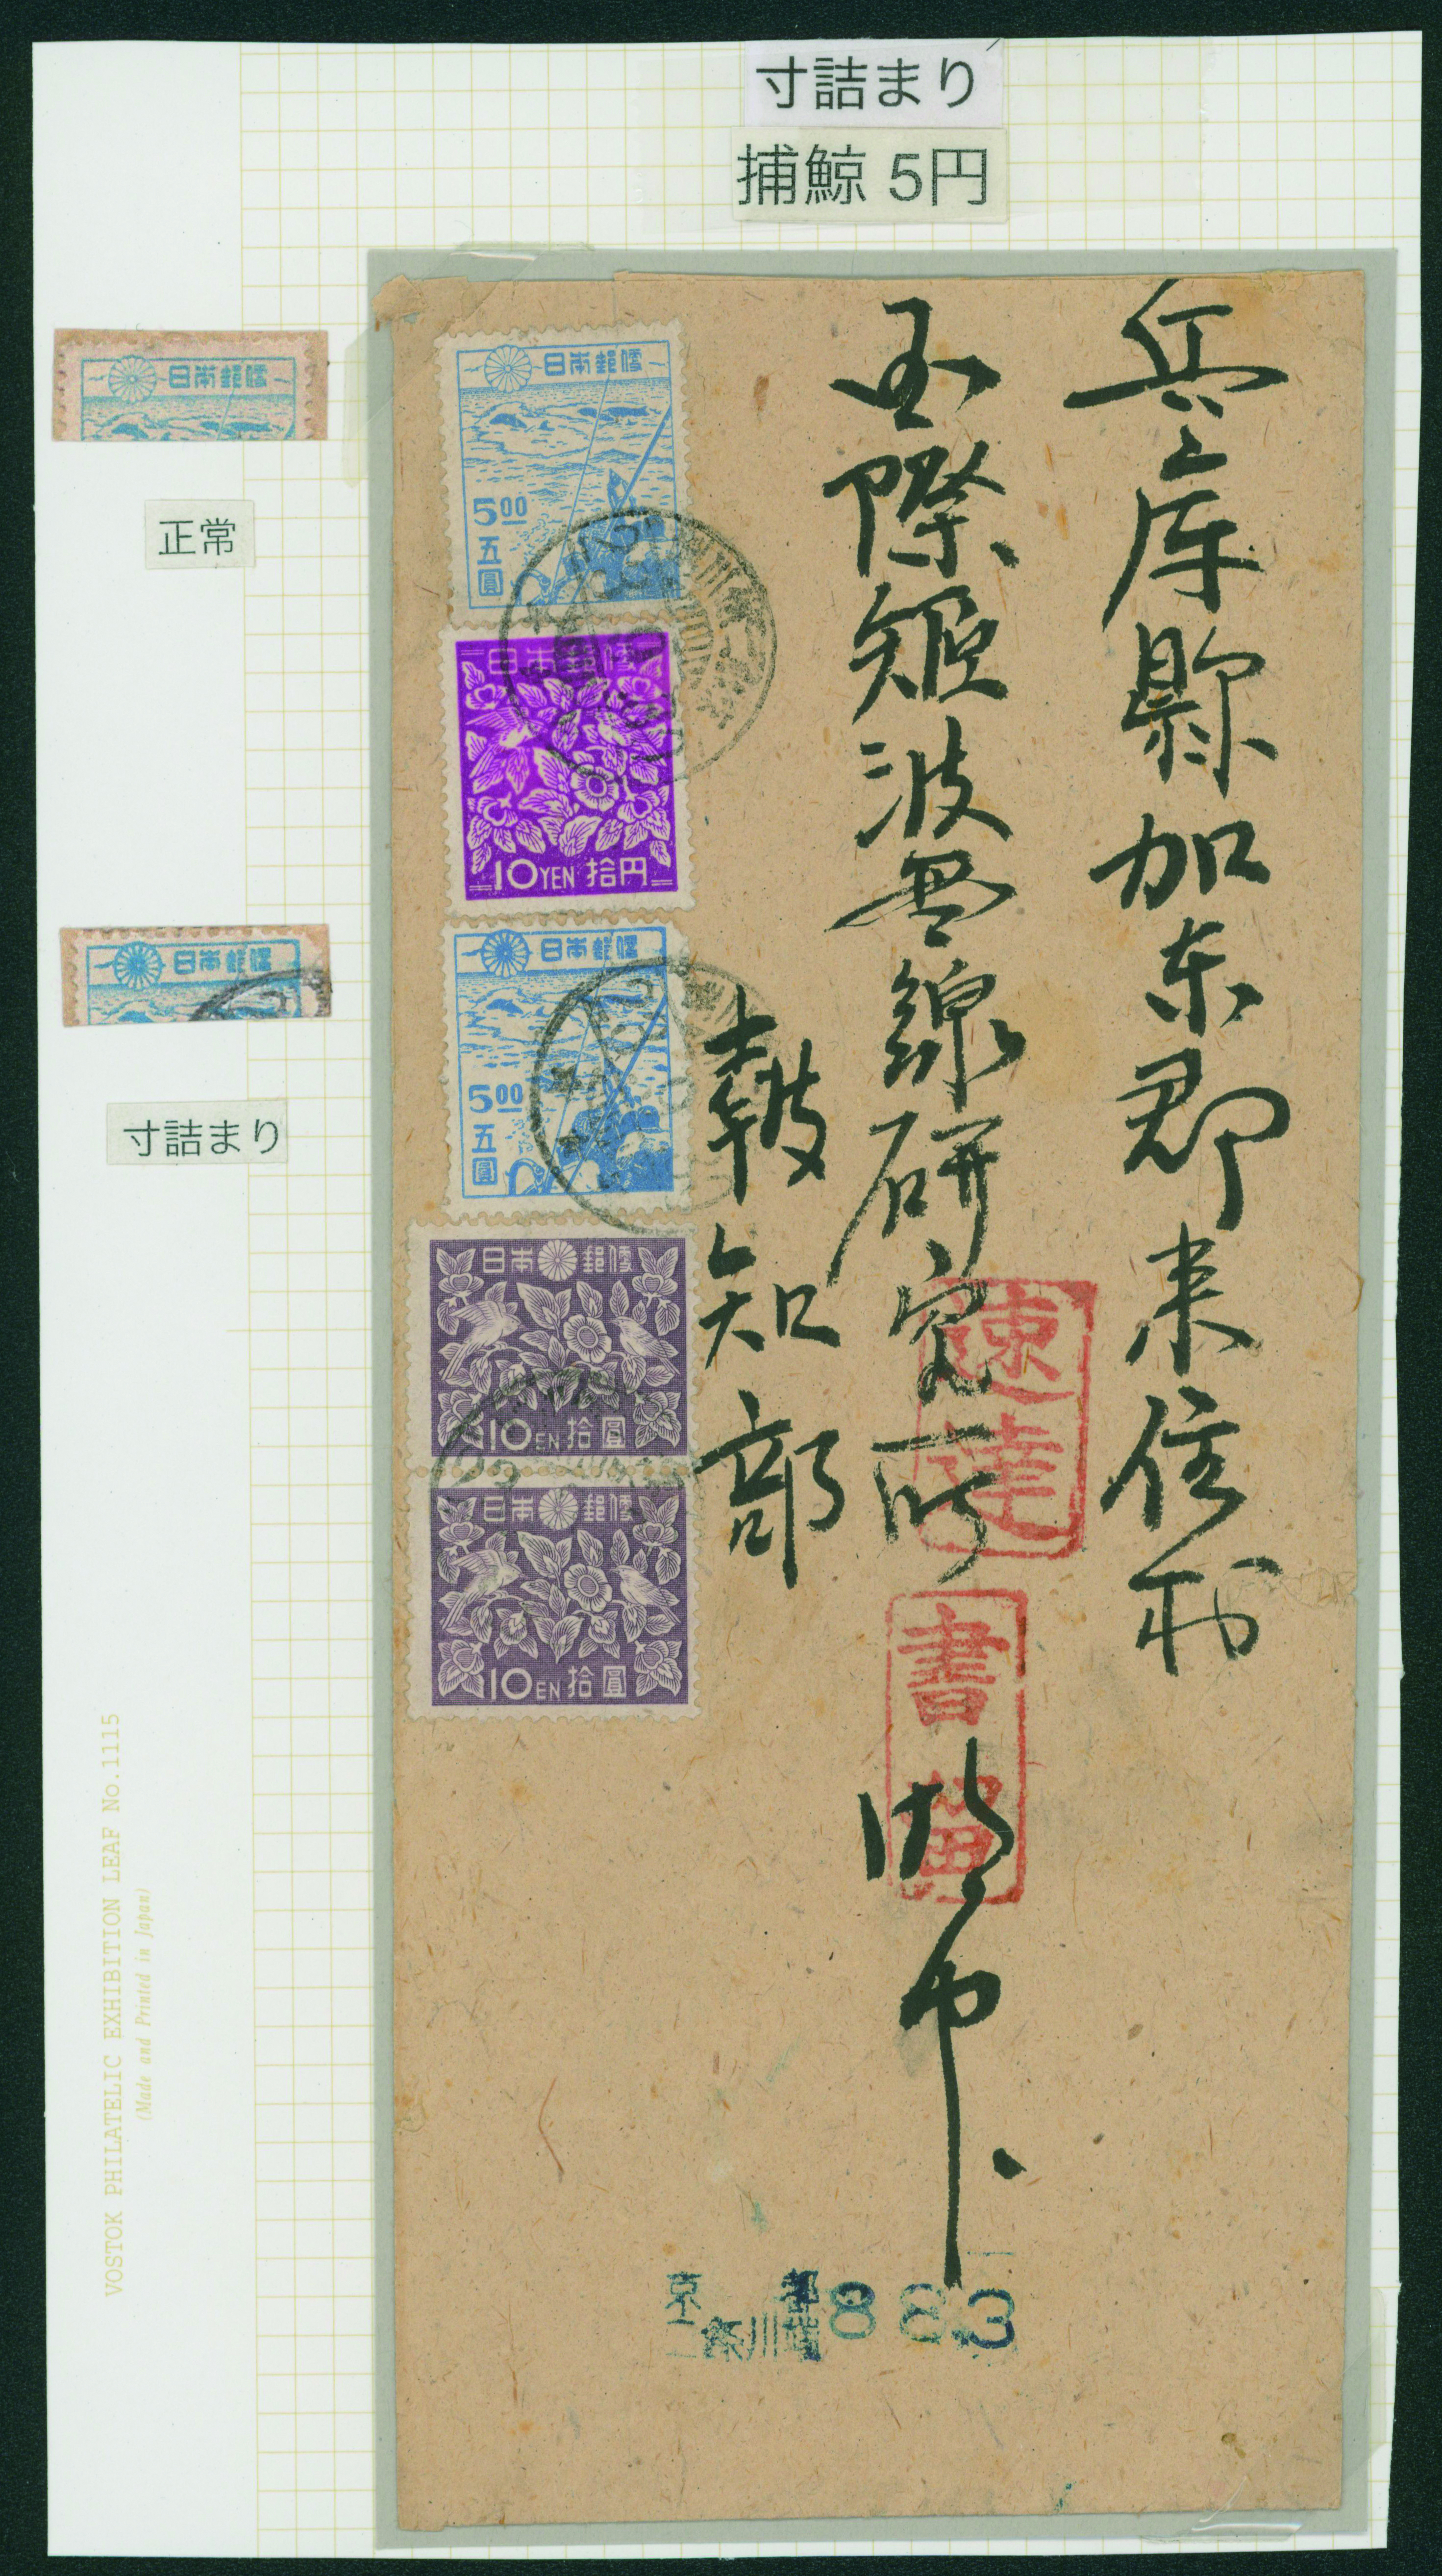 寸詰まり
捕鯨 5円
日本郵便
正常
日本郵便
寸詰まり
兵庫縣加東郡来住村
国際短波無線研究所 御中
報知部
日本郵便
5.00
五圓
日本郵便
10YEN 拾円
日本郵便
5.00
五圓
日本郵便
10EN 拾圓
日本郵便
10EN 拾圓
速達
書留
京都
二條川端
883
VOSTOK PHILATELIC EXHIBITION LEAF No.1115
(Made and Printed in Japan)